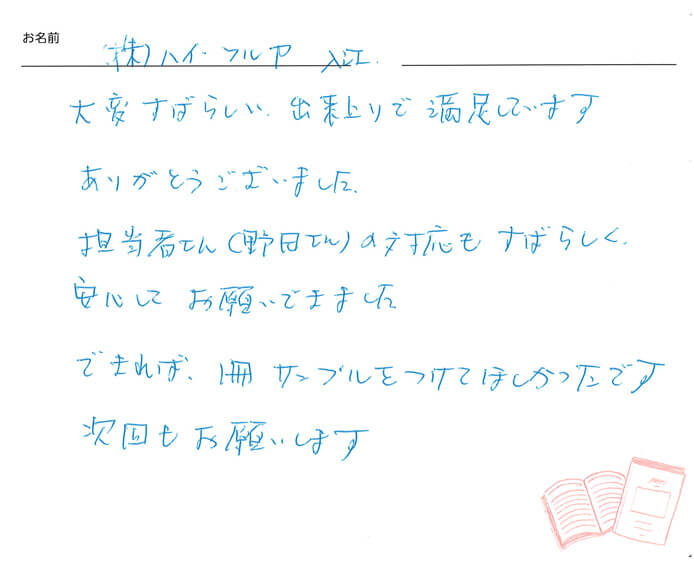 お名前
(株)ハイ・フルヤ 入江
大変すばらしい、出来上りで満足しています
ありがとうございました。
担当者さん(野田さん)の対応もすばらしく、
安心してお願いできました
できれば、1冊サンプルをつけてほしかったです
次回もお願いします